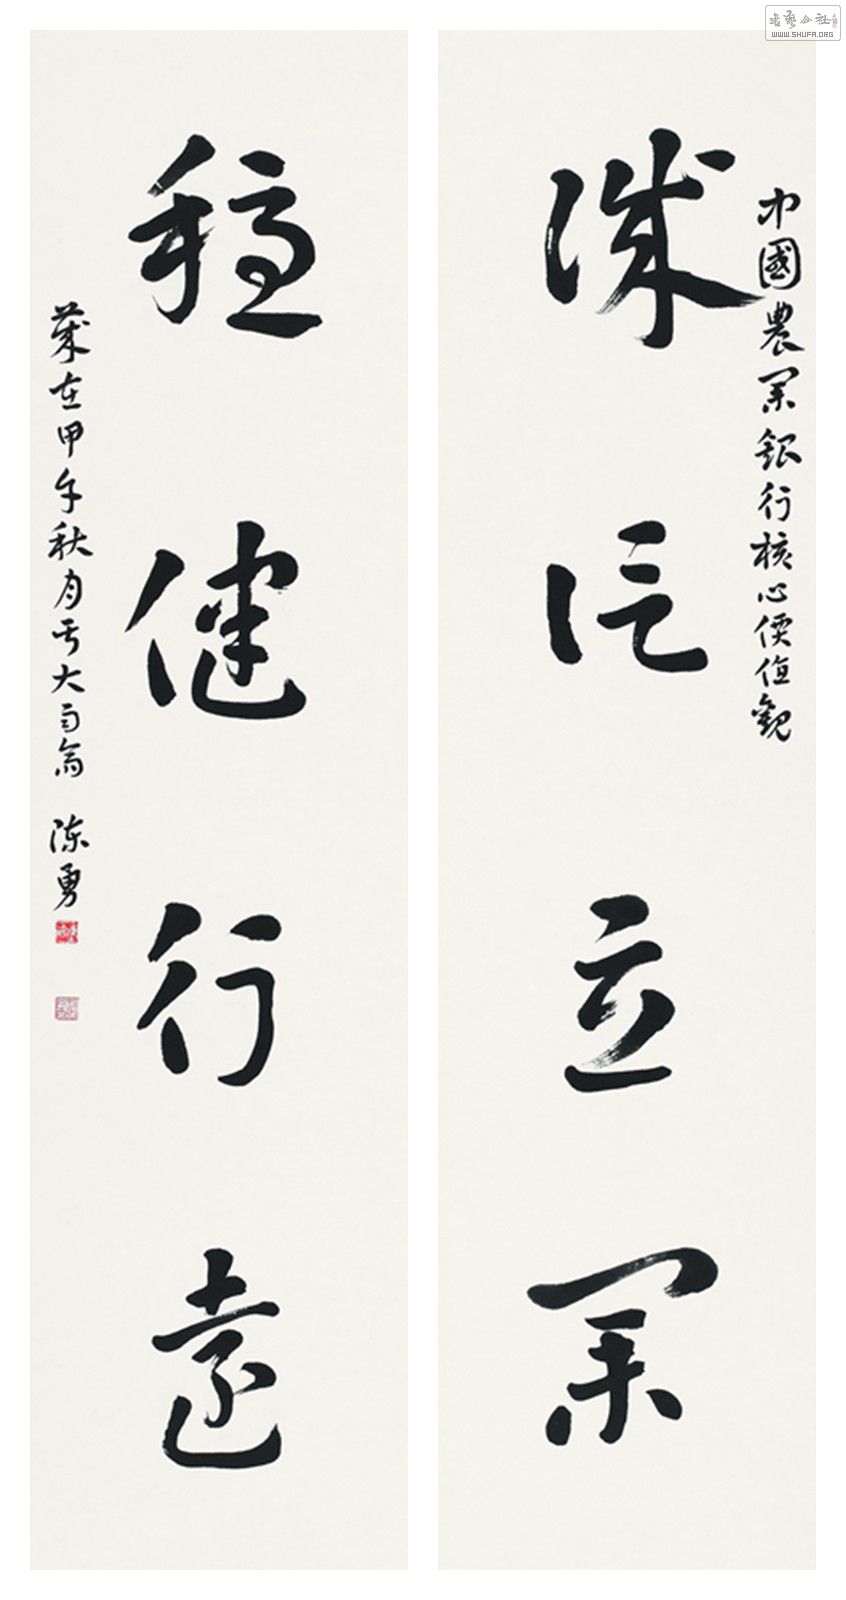 書藝公社
WWW.SHUFA.ORG
中國農業銀行核心價值觀
誠信立業
穩健行遠
歲在甲午秋月於大
陳勇